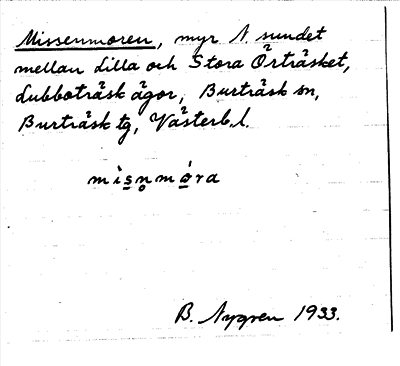 Missenmoren, myr N. sundet
mellan Lilla och Stora Örträsket,
Lubboträsk ägor, Burträsk sn,
Burträsk tg, Västerb.l.
misn̥mòra
B. Nygren 1933.